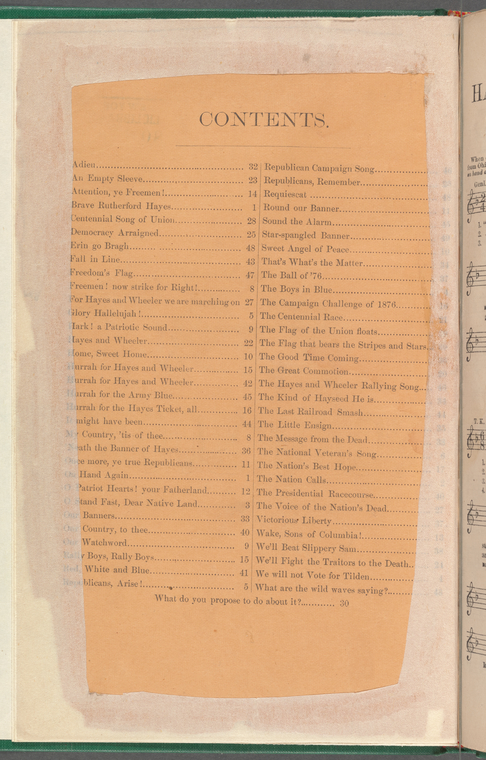 CONTENTS.
Adieu........ 32
An Empty Sleeve........ 23
Attention, ye Freemen!........ 14
Brave Rutherford Hayes........ 1
Centennial Song of Union........ 28
Democracy Arraigned........ 25
Erin go Bragh........ 48
Fall in Line........ 43
Freedom's Flag........ 47
Freemen! now strike for Right!........ 8
For Hayes and Wheeler we are marching on 27
Glory Hallelujah!........ 5
Hark! a Patriotic Sound........ 9
Hayes and Wheeler........ 22
Home, Sweet Home........ 10
Hurrah for Hayes and Wheeler........ 15
Hurrah for Hayes and Wheeler........ 42
Hurrah for the Army Blue........ 45
Hurrah for the Hayes Ticket, all........ 16
might have been........ 44
Country, 'tis of thee........ 8
the Banner of Hayes........ 36
more, ye true Republicans........ 11
Hand Again........ 1
Patriot Hearts! your Fatherland........ 12
Stand Fast, Dear Native Land........ 3
Banners........ 33
Country, to thee........ 40
Watchword........ 9
Boys, Rally Boys........ 15
White and Blue........ 41
blicans, Arise!........ 5
Republican Campaign Song........
Republicans, Remember........
Requiescat ........
Round our Banner........
Sound the Alarm........
Star-spangled Banner........
Sweet Angel of Peace........
That's What's the Matter........
The Ball of '76........
The Boys in Blue........
The Campaign Challenge of 1876........
The Centennial Race........
The Flag of the Union floats........
The Flag that bears the Stripes and Stars
The Good Time Coming........
The Great Commotion........
The Hayes and Wheeler Rallying Song........
The Kind of Hayseed He is........
The Last Railroad Smash........
The Little Ensign........
The Message from the Dead........
The National Veteran's Song........
The Nation's Best Hope........
The Nation Calls........
The Presidential Racecourse........
The Voice of the Nation's Dead........
Victorious Liberty........
Wake, Sons of Columbia!........
We'll Beat Slippery Sam........
We'll Fight the Traitors to the Death........
We will not Vote for Tilden........
What are the wild waves saying?........
What do you propose to do about it?........ 30